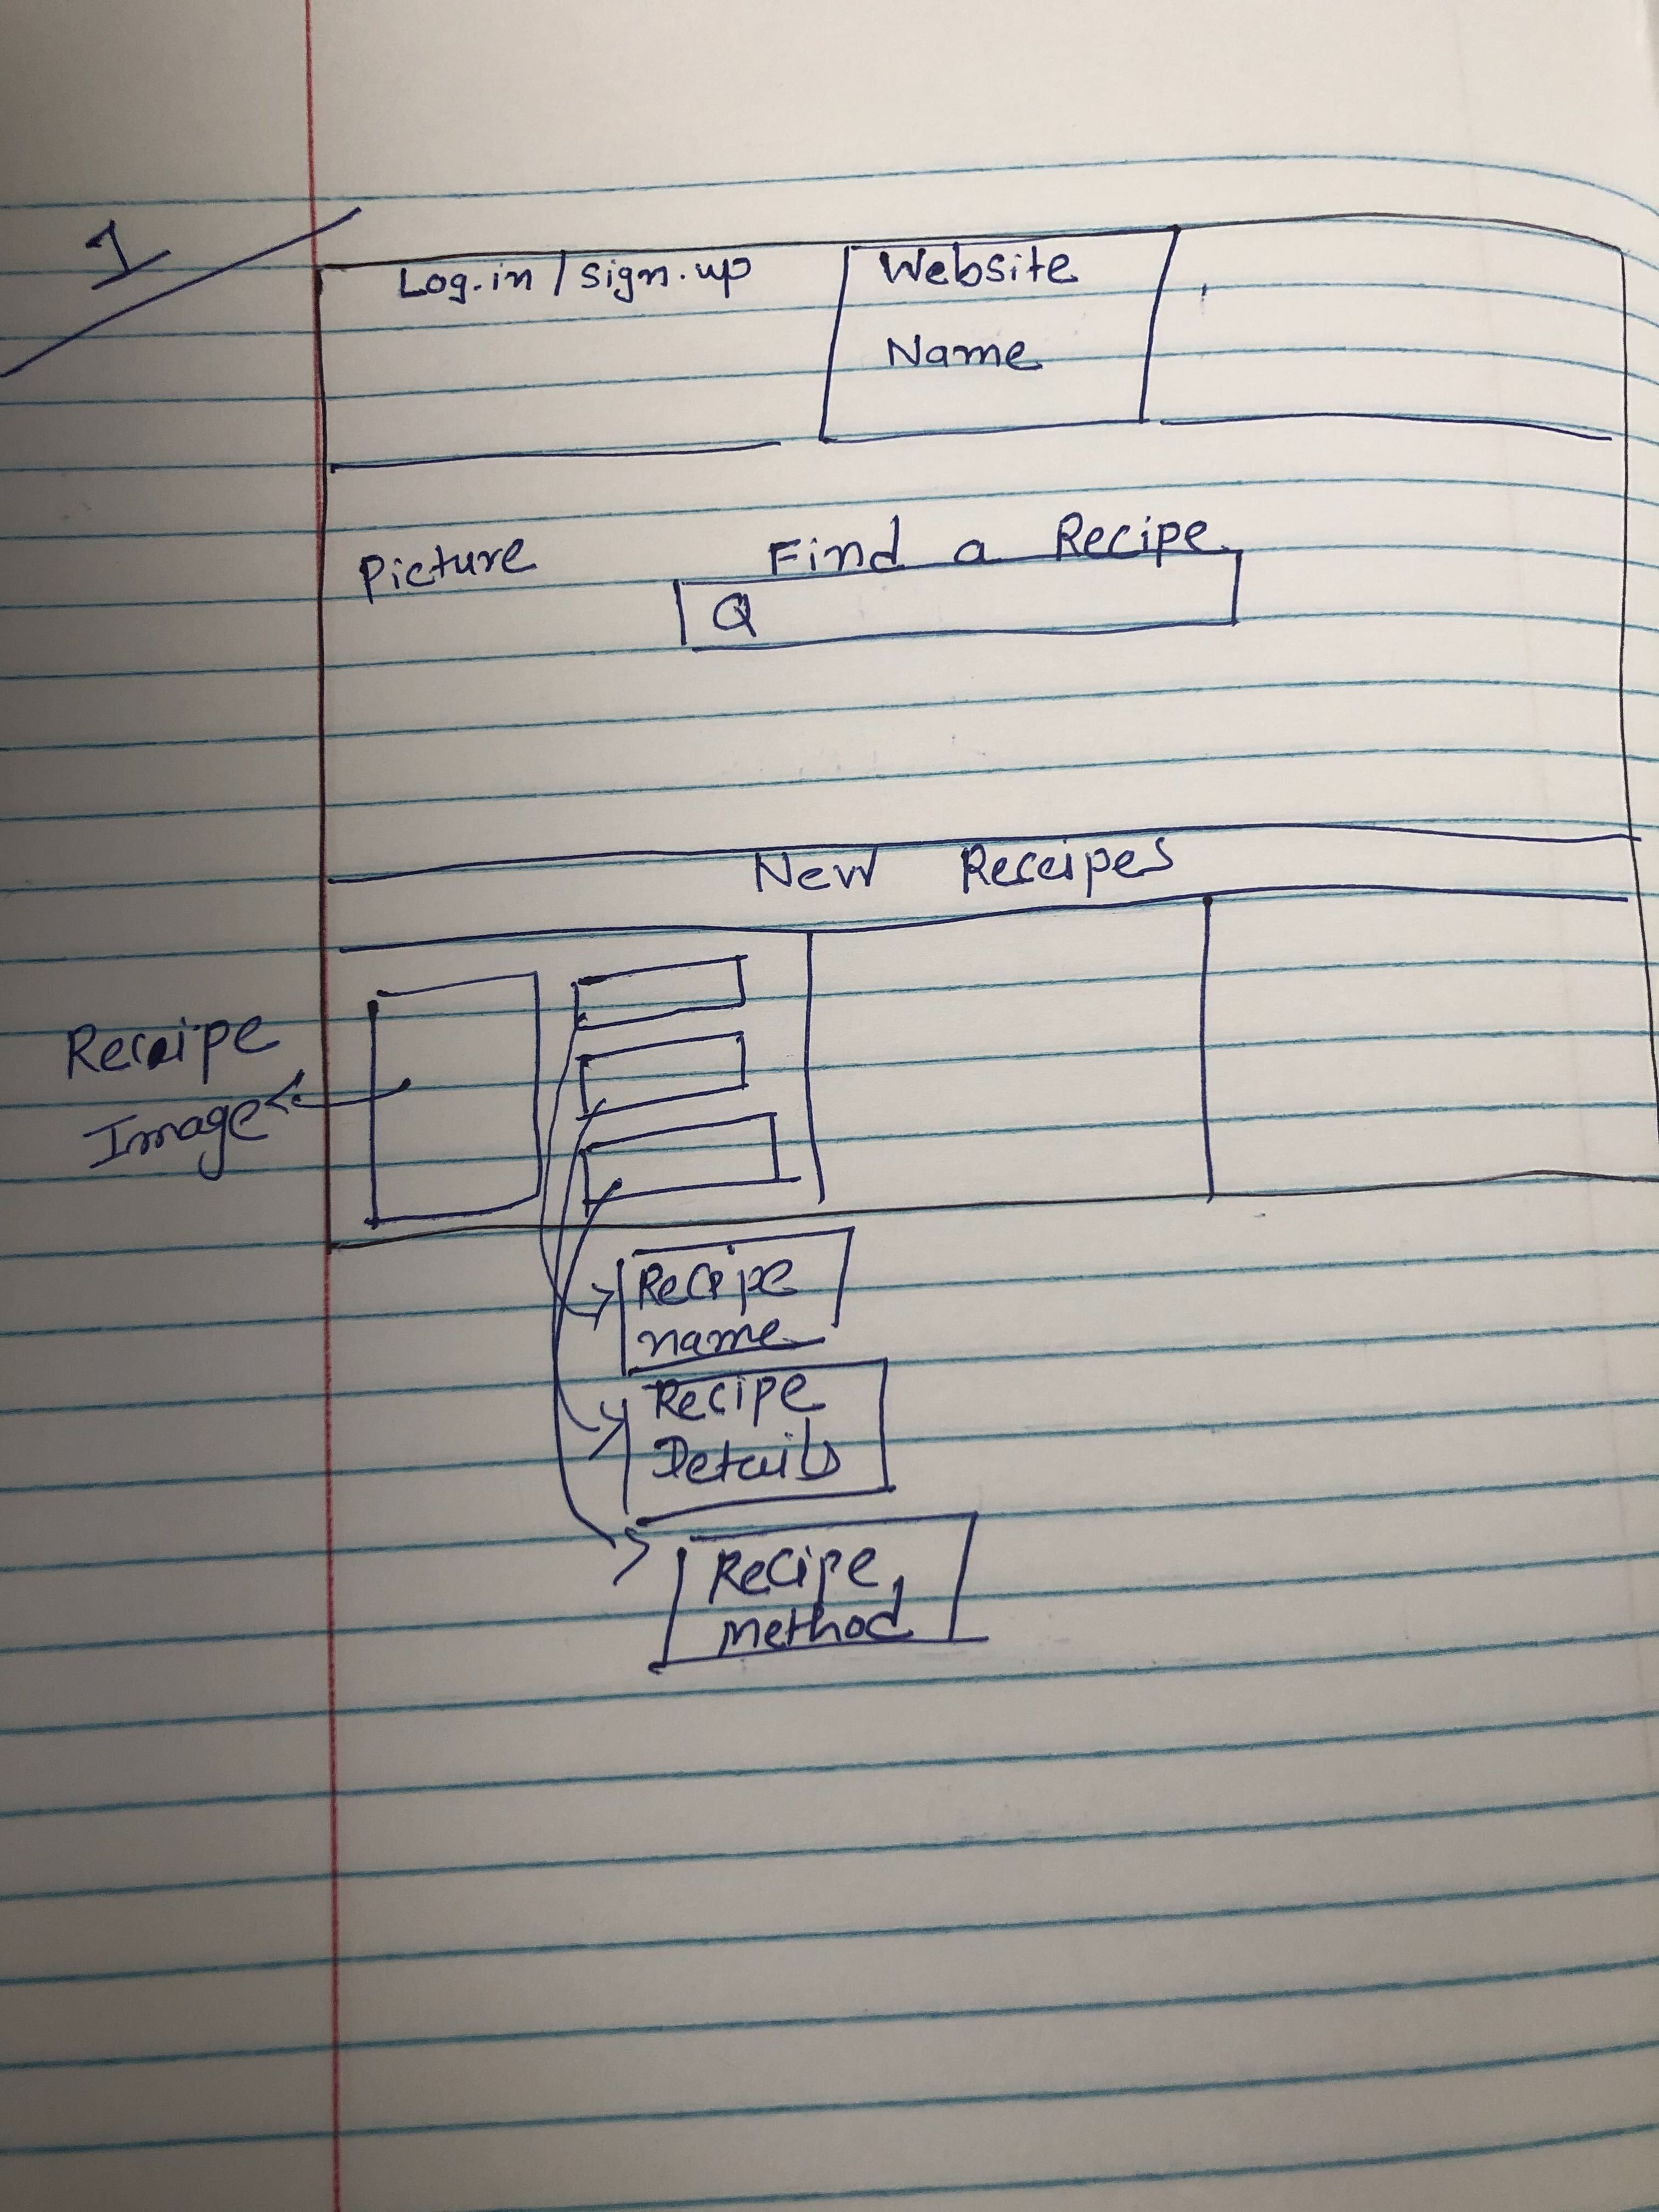 1
Log.in / sign.up
Website
Name
Picture
Find a Recipe
Q
New Receipes
Receipe
Image
Recipe
name
Recipe
Details
Recipe
method